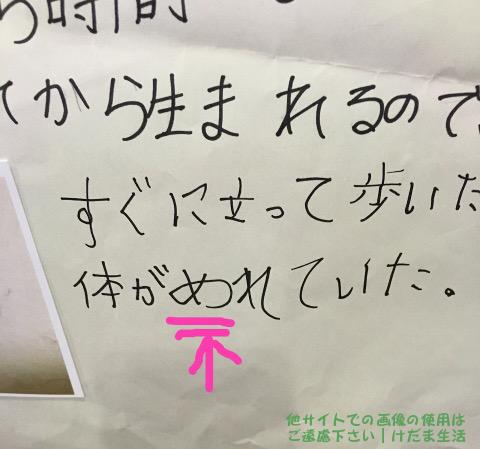 ら時間
てから生まれるので
すぐに立って歩いた
体がめれていた。
他サイトでの画像の使用は
ご遠慮下さい｜けだま生活